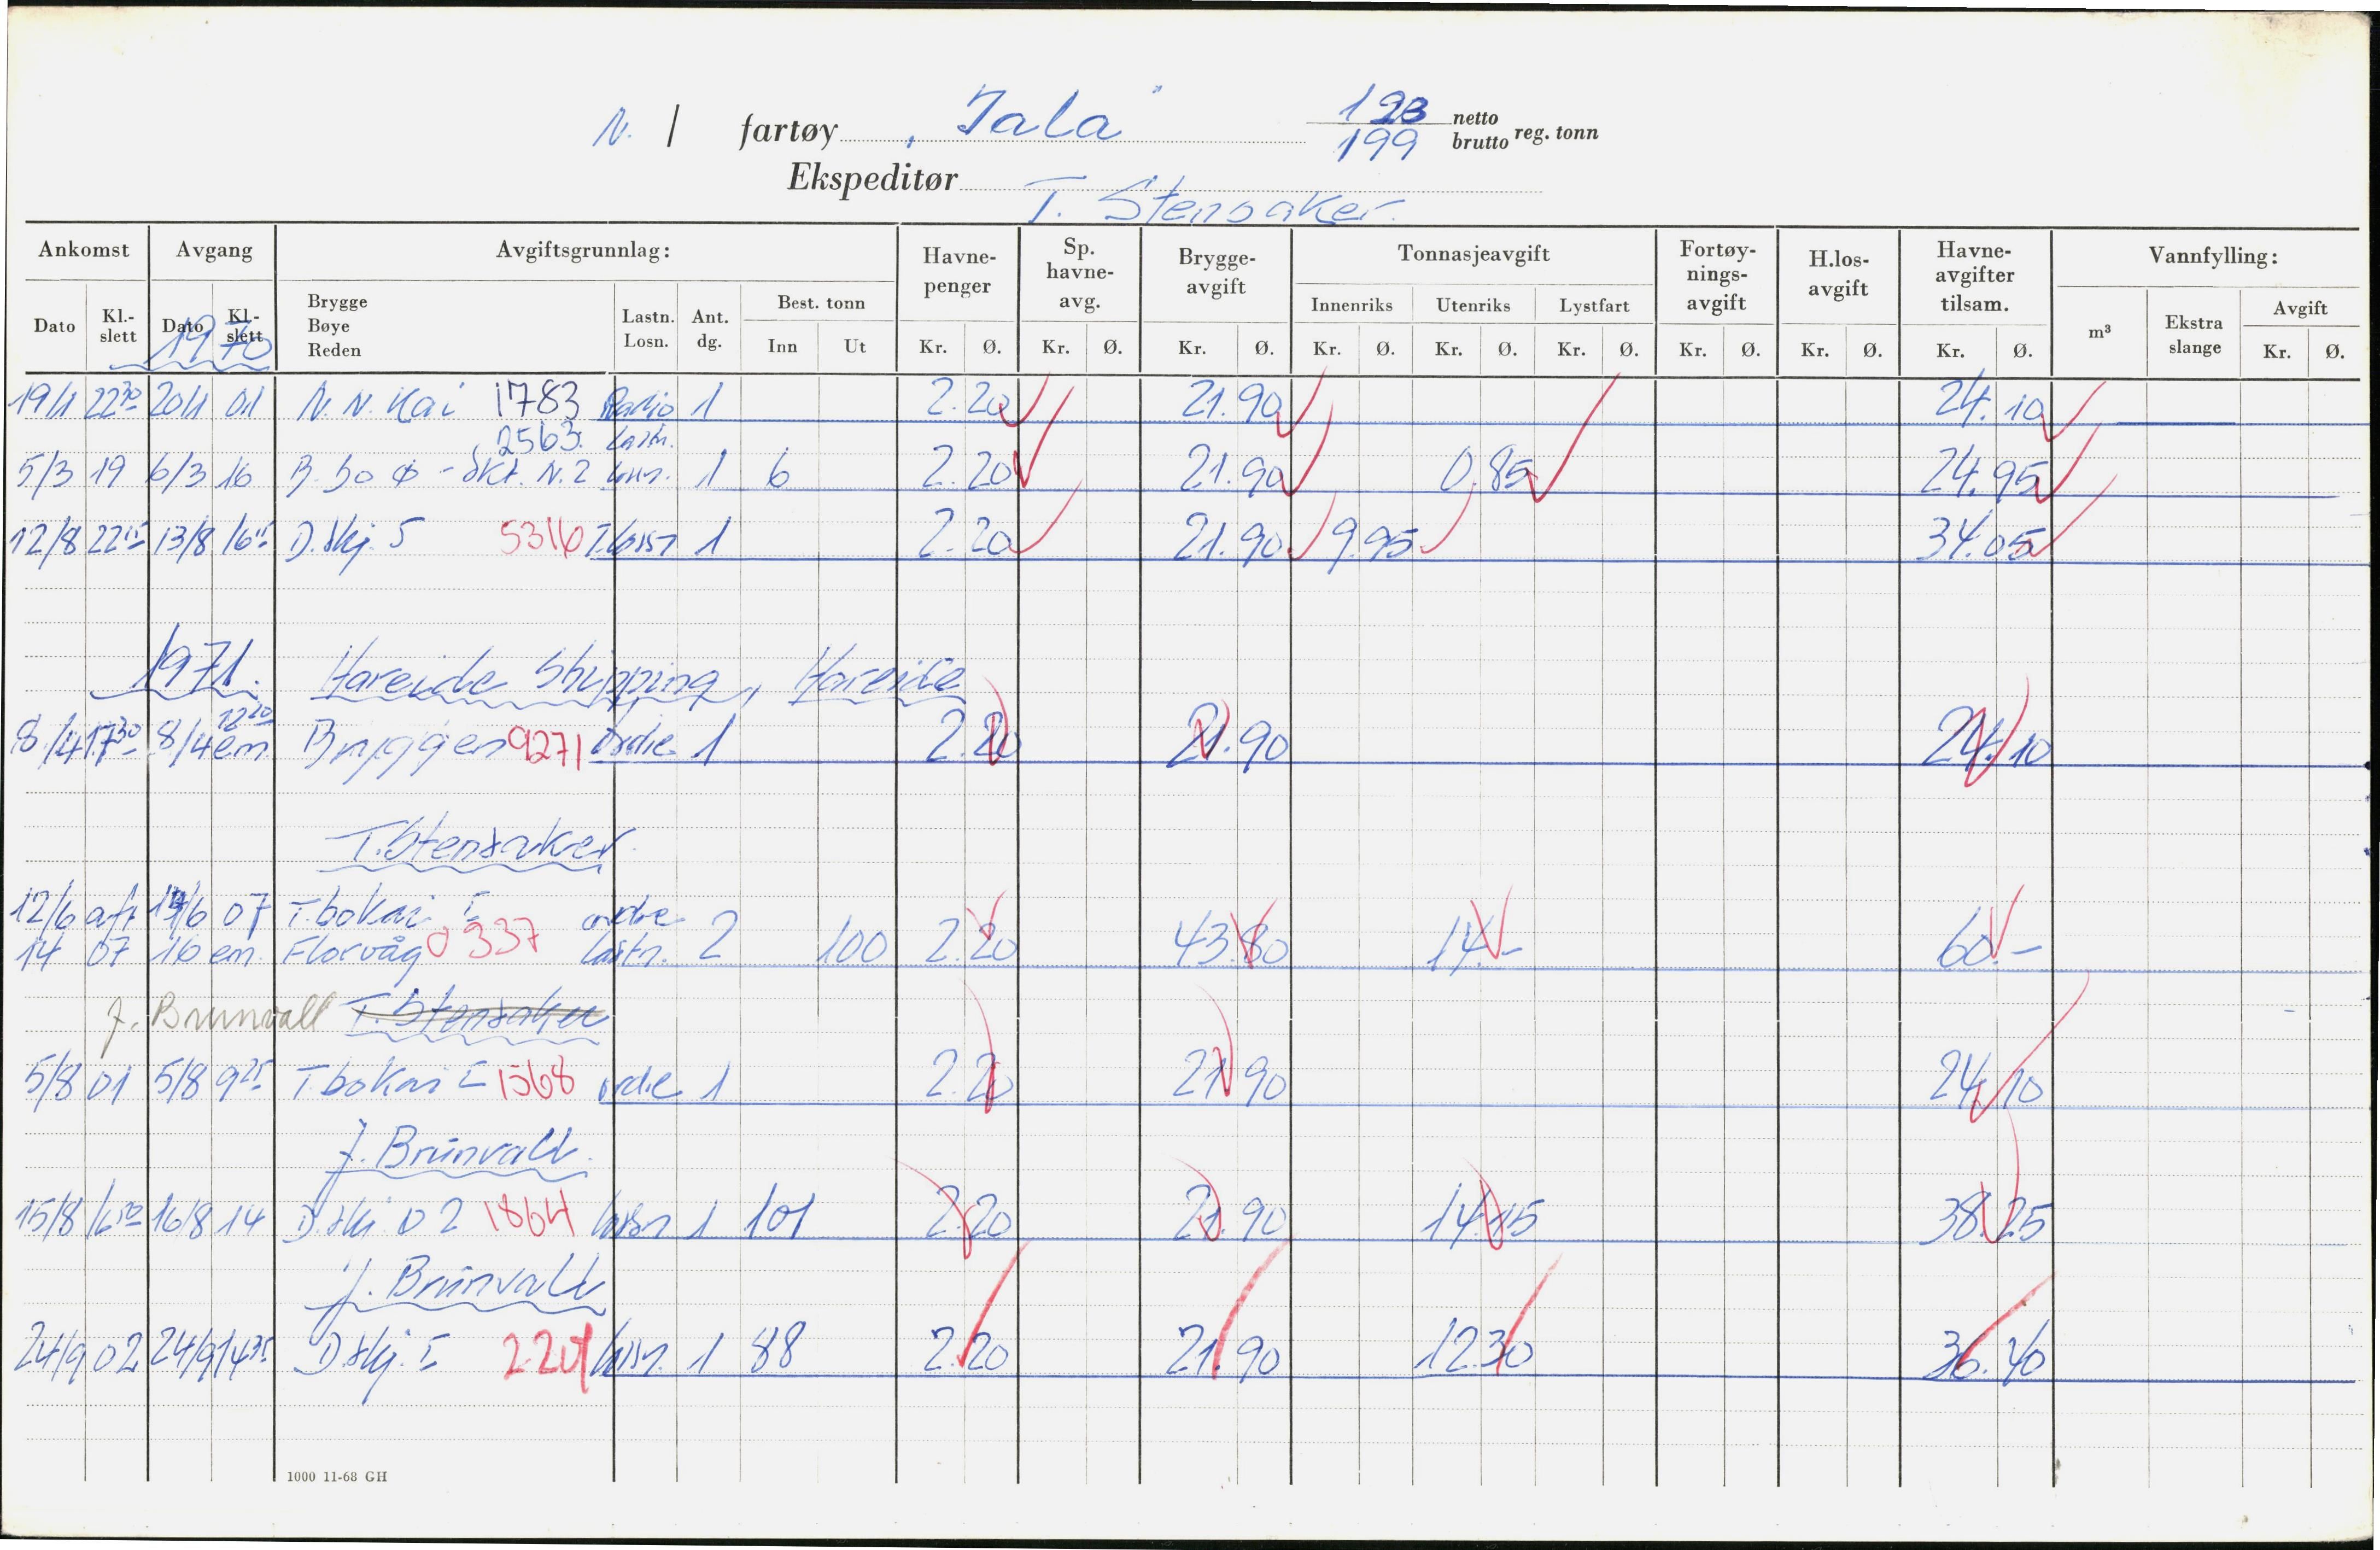 N. / fartøy "Jala" 123 netto
199 brutto reg. tonn
Ekspeditør T. Stensaker.
Ankomst Avgang Avgiftsgrunnlag: Havne-penger Sp. havne-avg. Brygge-avgift Tonnasjeavgift Fortøy-nings-avgift H.los-avgift Havne-avgifter tilsam. Vannfylling:
Dato Kl.-slett Dato Kl.-slett Brygge Bøye Reden Lastn. Losn. Ant. dg. Best. tonn Innenriks Utenriks Lystfart m³ Ekstra slange Avgift
Inn Ut Kr. Ø. Kr. Ø. Kr. Ø. Kr. Ø. Kr. Ø. Kr. Ø. Kr. Ø. Kr. Ø. Kr. Ø. Kr. Ø.
1970
19/1 22 30 20/1 01 N.N. Kai 1783 Radio 1 2.20 21.90 24.10
2563 Lastn.
5/3 19 6/3 16 B. 50 - Skt. N. 2 1 6 2.20 21.90 0.85 24.95
12/8 22 15 13/8 D. Skj. 5 5316 1 2.20 21.90 9.95 34.05
1971. Hareide Shipping, Hareide
8/4 17 30 8/4 em. Bryggen 9271 ordre 1 2.20 21.90 24.10
T. Stensaker
12/6 afr 14/6 07 T. bokai I ordre
14 07 16 em. Florvåg 0337 Lastn. 2 100 2.20 43.80 14.- 60.-
J. Brunvall T. Stensaker
5/8 01 5/8 9 25 T. bokai I 1568 ordre 1 2.20 21.90 24.10
J. Brunvall.
15/8 16 30 16/8 14 D. Skj. 02 1864 lossn 1 101 2.20 21.90 14.15 38.25
J. Brunvall
24/9 02 24/9 14 35 D. Skj. I 2201 lossn. 1 88 2.20 21.90 12.30 36.40
1000 11-68 GH